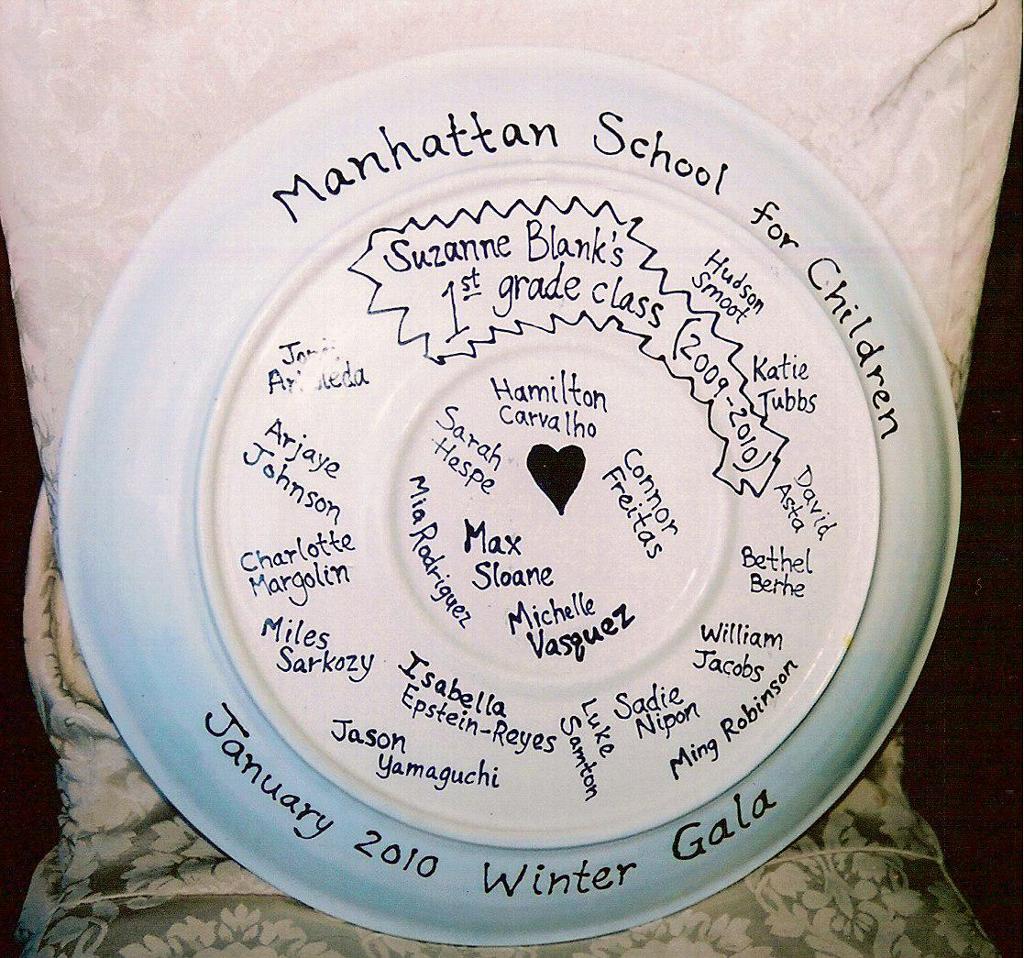 Manhattan School for Children
Suzanne Blank's
1st grade class (2009-2010)
Hudson
Smoot
Katie
Tubbs
David
Asta
Bethel
Berhe
William
Jacobs
Ming Robinson
Sadie
Nipon
Luke
Samton
Isabella
Epstein-Reyes
Jason
Yamaguchi
Miles
Sarkozy
Charlotte
Margolin
Arjaye
Johnson
Hamilton
Carvalho
Connor
Freitas
Michelle
Vasquez
Max
Sloane
Mia Rodriguez
Sarah
Hespe
January 2010 Winter Gala